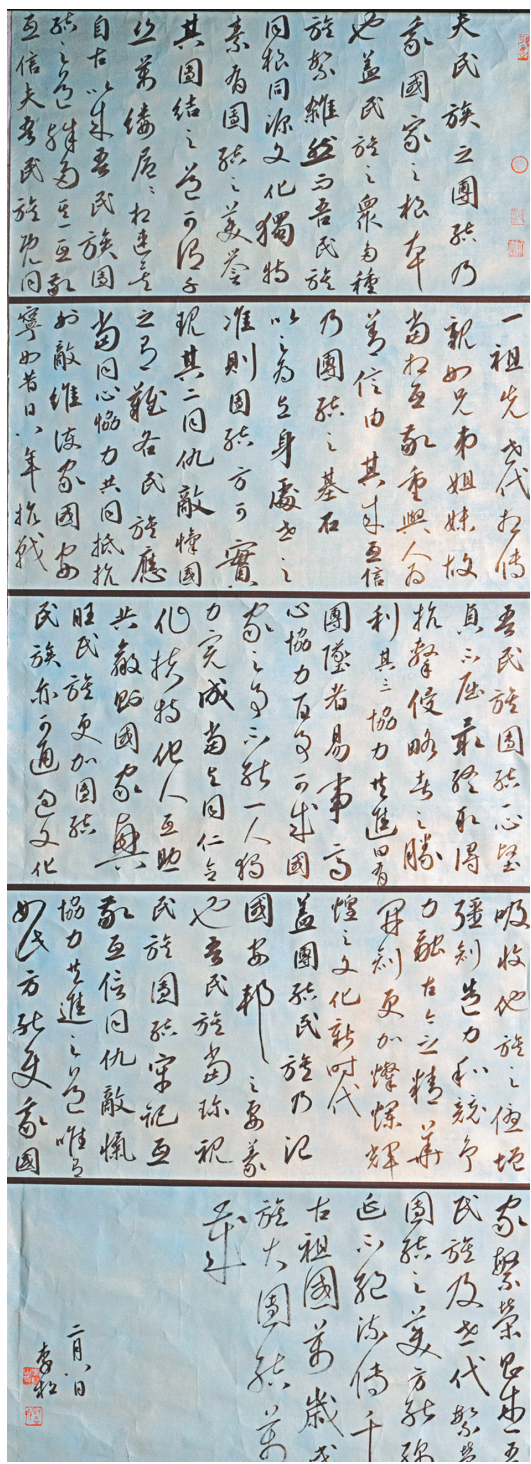 夫民族之團結乃
我國家之根本
也蓋民族之衆多種
族繁雜然而吾民族
同根同源文化獨特
素有團結之美譽
其團結之道可謂千
絲萬縷層層相連矣
自古以來吾民族團
結之道殊多其一互敬
互信夫吾民族既同
一祖先世代相傳
親如兄弟姐妹故
當相互敬重與人為
善信由其来互信
乃團結之基石
以之為立身處世之
准則團結方可實
現其二同仇敵愾國
之有難各民族應
當同心協力共同抵抗
外敵維護家國安
寧如昔日八年抗戰
吾民族團結一心堅
貞不屈最終取得
抗擊侵略者之勝
利其三協力共進曰有
團隊者易事高
心協力百事可成國
家之事不能一人獨
力完成當與同仁合
作扶持他人互助
共贏則國家興
旺民族更加團結
民族亦可通過文化
吸收他族之
疆創造力和競爭
力融古今之精華
開創更加燦爛輝
煌之文化新時代
蓋團結民族乃
國安邦之要義
也吾民族當珍視
民族團結牢記互
敬互信同仇敵愾
協力共進之道唯有
如此方能使我國
家繁榮昌
民族及世代繁榮
團結之美方能
延不絕流傳千
古祖國萬歲
族大團結萬
歲
二月八日
李松